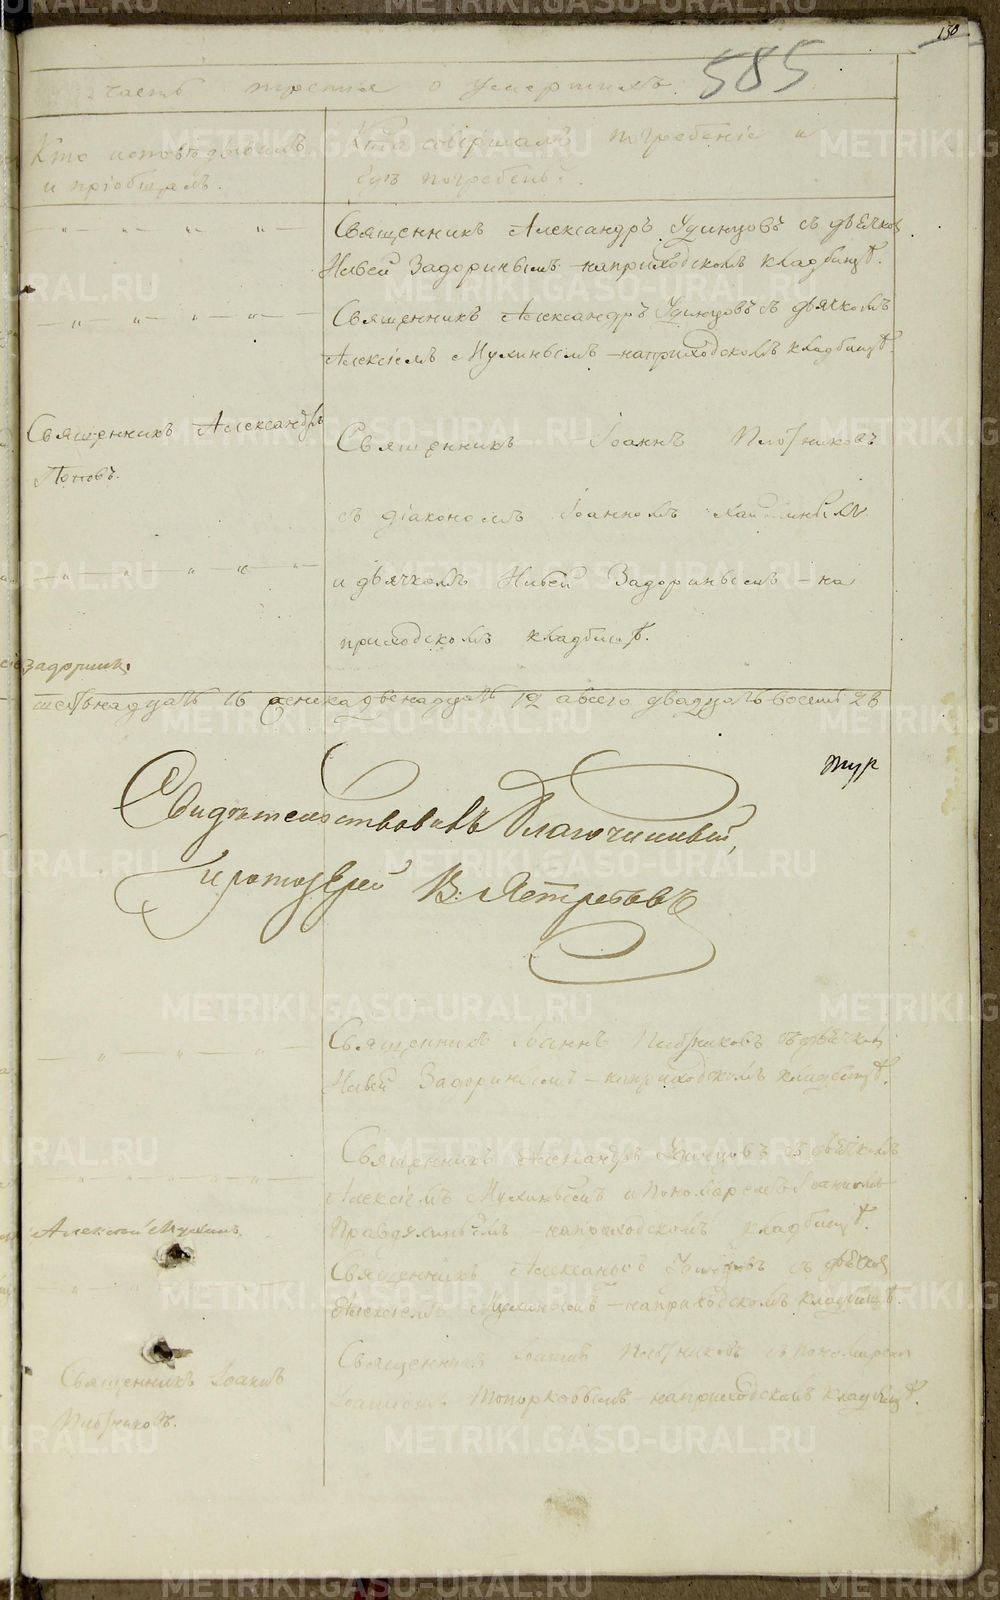 130
585
часть третья о умершихъ.
Кто исповѣдывалъ
и пріобщалъ.
Кто совершалъ погребеніе и
гдѣ погребены.
Священникъ Александръ Удинцовъ съ дьячком
Задоринымъ на приходскомъ кладбищѣ.
Священникъ Александръ Удинцовъ съ дьячкомъ
Алексіемъ Мухинымъ на приходскомъ кладбищѣ.
Священникъ Александръ
Поповъ.
Священникъ Іоаннъ Плотниковъ
съ діакономъ Іоанномъ
и дьячкомъ Задоринымъ на
приходскомъ кладбищѣ.
Задоринъ.
шестьнадцать 16 женска двенадцать 12 а всего двадцать восемь 28
Свидѣтельствовалъ Благочинный,
Протоіерей В. Ястребовъ
Священникъ Іоаннъ Плотниковъ съ дьячком
Задоринымъ на приходскомъ кладбищѣ.
Священникъ Александръ Удинцовъ съ дьячкомъ
Алексіемъ Мухинымъ и пономаремъ Іоанномъ
на приходскомъ кладбищѣ.
Алексѣй Мухинъ.
Священникъ Александръ Удинцовъ съ дьячком
Алексіемъ Мухинымъ на приходскомъ кладбищѣ.
Священникъ Іоаннъ Плотниковъ съ пономарем
Іоанномъ Топорковымъ на приходскомъ кладбищѣ.
Священникъ Іоаннъ
Плотниковъ.
METRIKI.GASO-URAL.RU